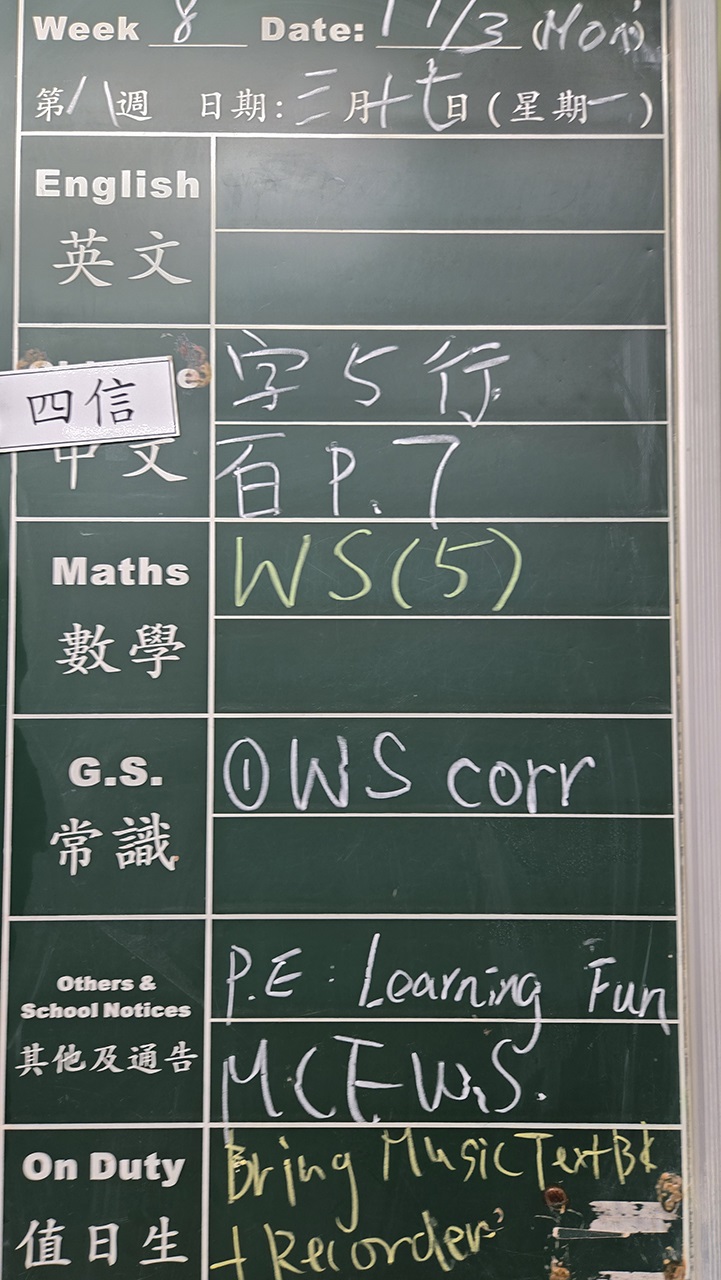 Week 8 Date: 17/3 (Mon)
第八週 日期:三月十七日(星期一)
English
英文
四信
字5行
中文
百P.7
Maths
WS(5)
數學
G.S.
①WS corr
常識
Others &
School Notices
其他及通告
P.E : Learning Fun
MCE W.S.
On Duty
值日生
Bring Music TextBk
+ Recorder